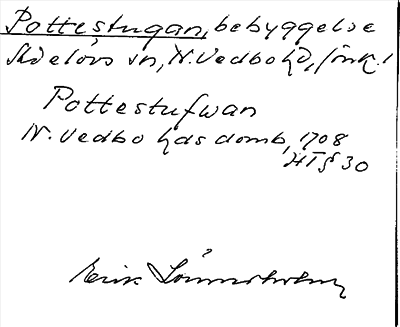 Pottestugan, bebyggelse
Skelövs sn, N. Vedbo hd, Jönk. l
Pottestufwan
N. Vedbo hds domb, 1708
HT § 30
Erik